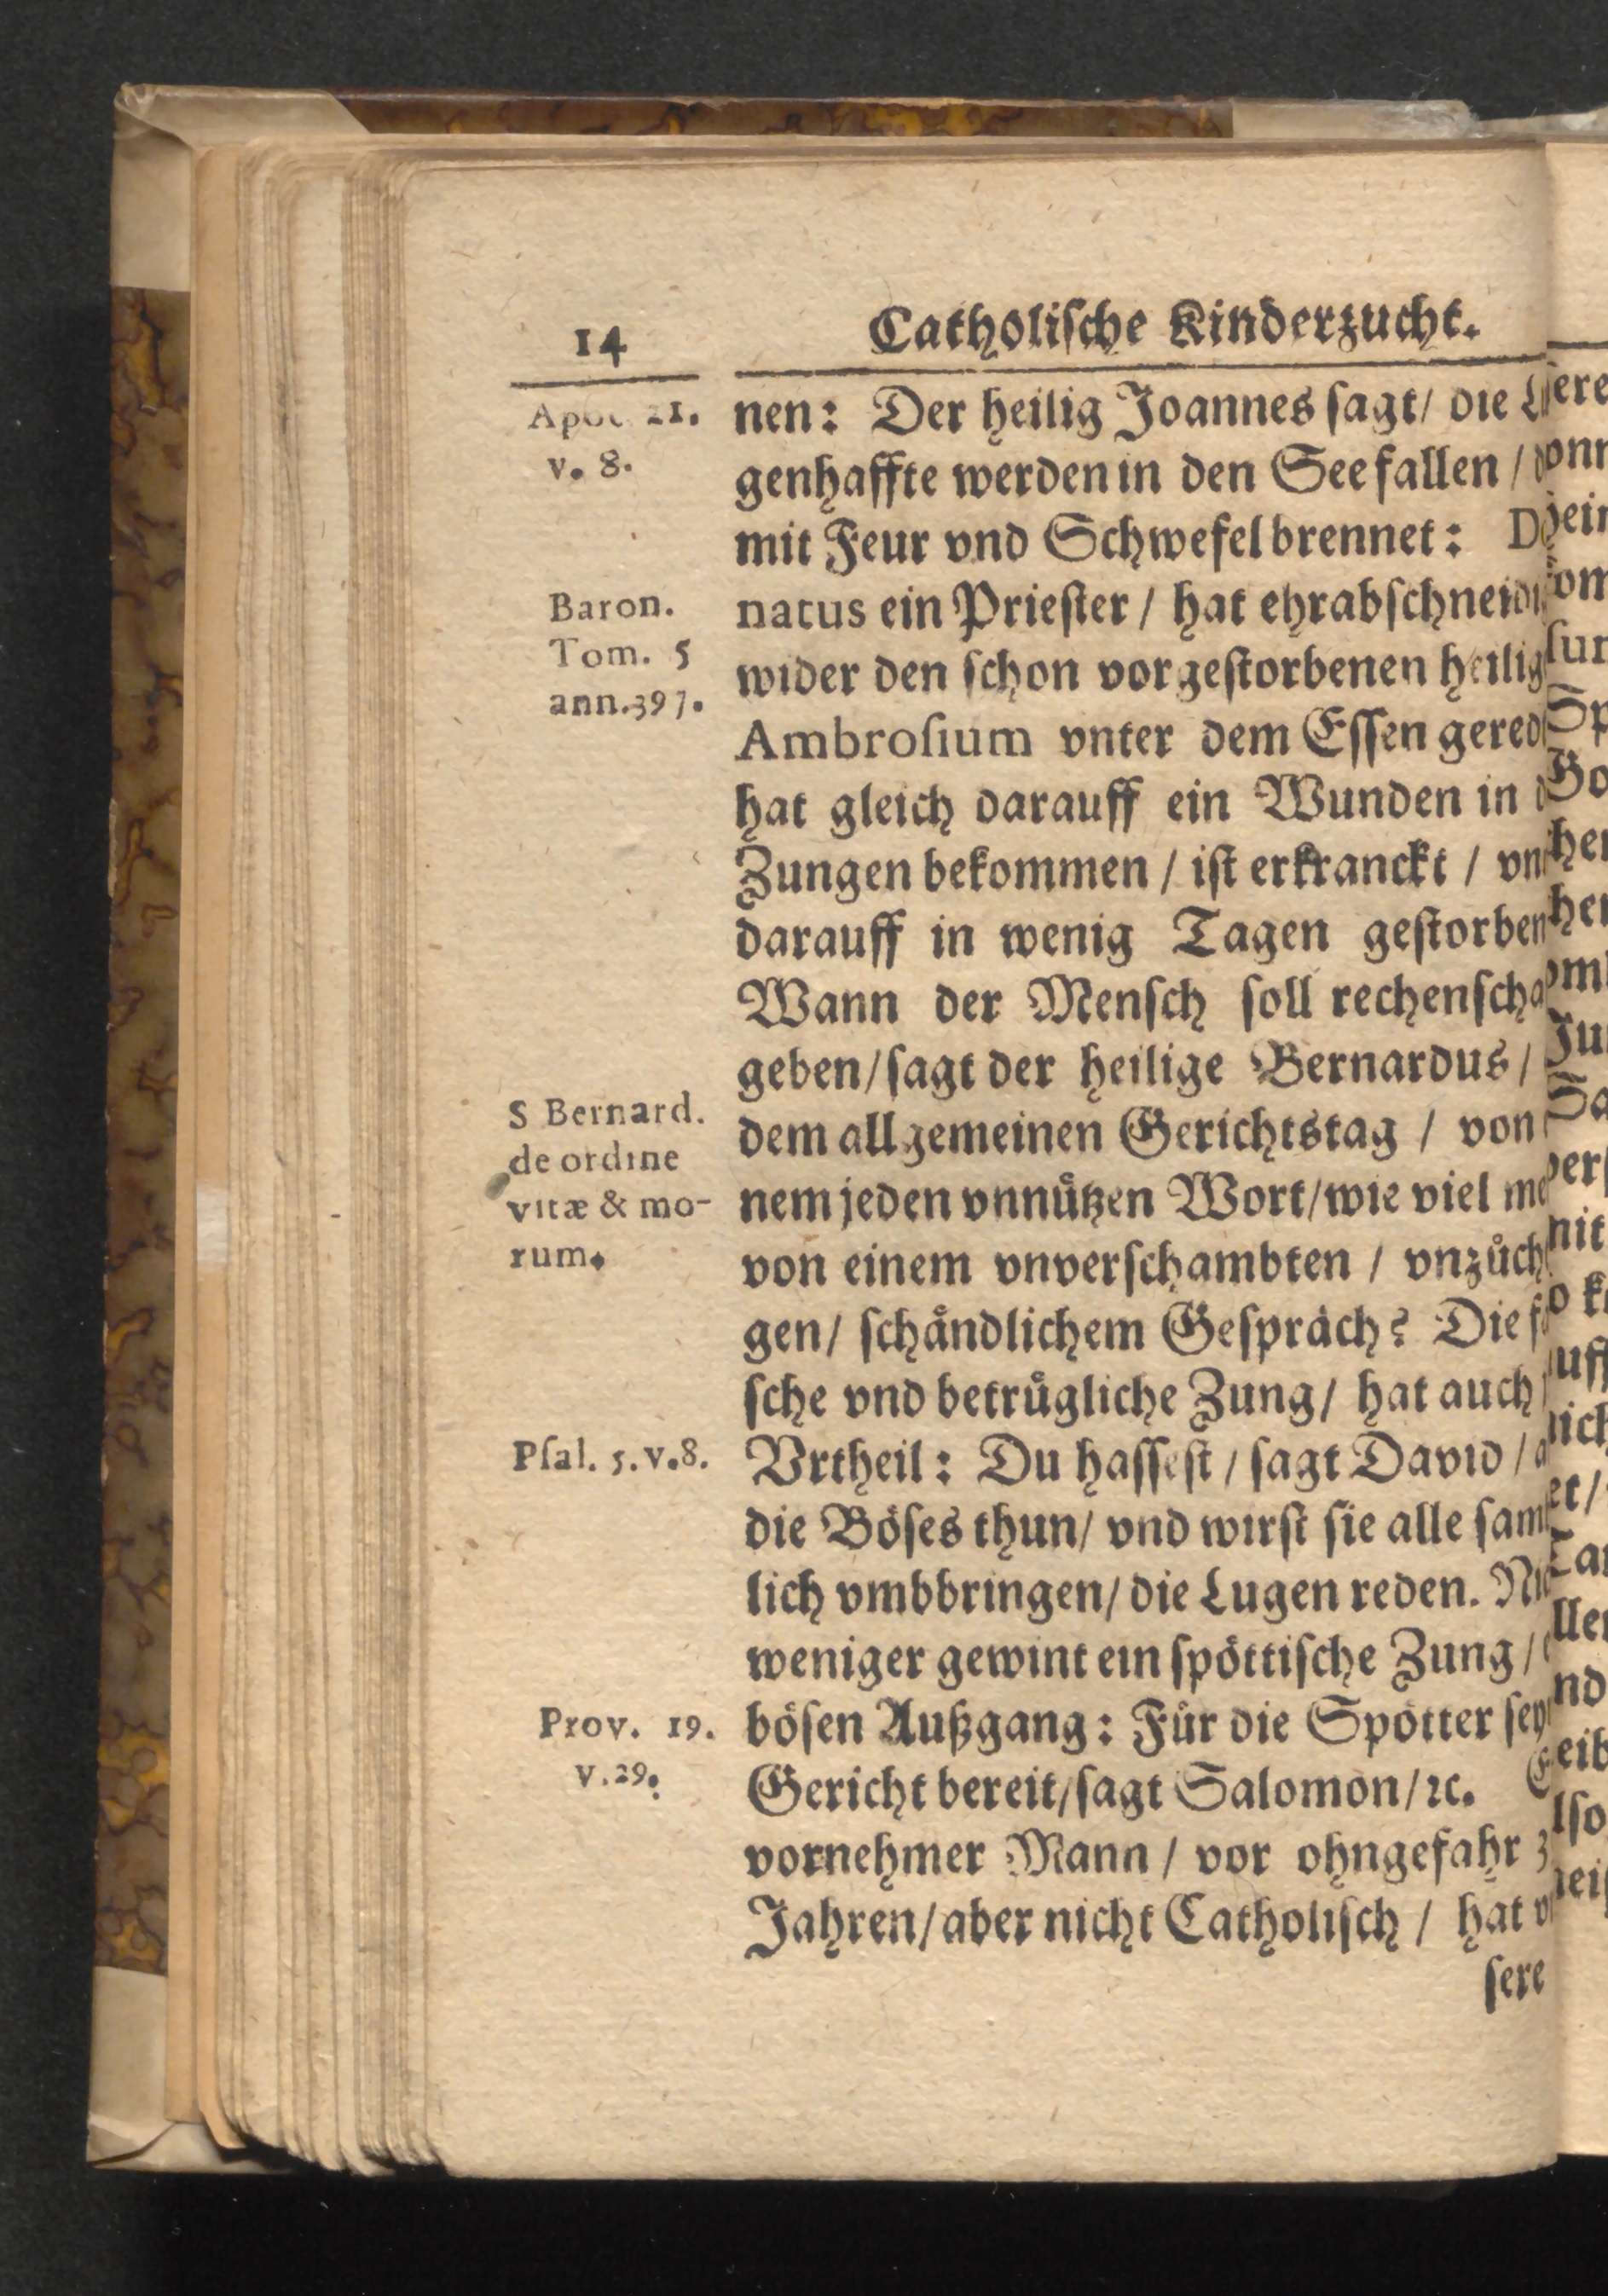 14
Catholische Kinderzucht.
Apoc 21.
v. 8.
Baron.
Tom. 5
ann. 397.
S Bernard.
de ordine
vitæ & mo-
rum.
Psal. 5. v. 8.
Prov. 19.
v. 29.
nen: Der heilig Joannes sagt/ die
genhaffte werden in den See fallen /
mit Feur vnd Schwefel brennet:
natus ein Priester / hat
wider den schon vorgestorbenen
Ambrosium vnter dem Essen
hat gleich darauff ein Wunden in
Zungen bekommen / ist erkranckt /
darauff in wenig Tagen gestorben
Wann der Mensch soll
geben/ sagt der heilige Bernardus /
dem allgemeinen Gerichtstag / von
nem jeden vnnůtzen Wort/ wie viel
von einem vnverschambten /
gen/ schåndlichem Gespråch? Die
sche vnd betrůgliche Zung/ hat auch
Vrtheil: Du hassest / sagt David /
die Böses thun/ vnd wirst sie alle
lich vmbbringen/ die Lugen reden.
weniger gewint ein spöttische Zung /
bösen Außgang: Für die Spötter
Gericht bereit/ sagt Salomon/ ꝛc.
vornehmer Mann / vor ohngefahr
Jahren/ aber nicht Catholisch / hat
sere